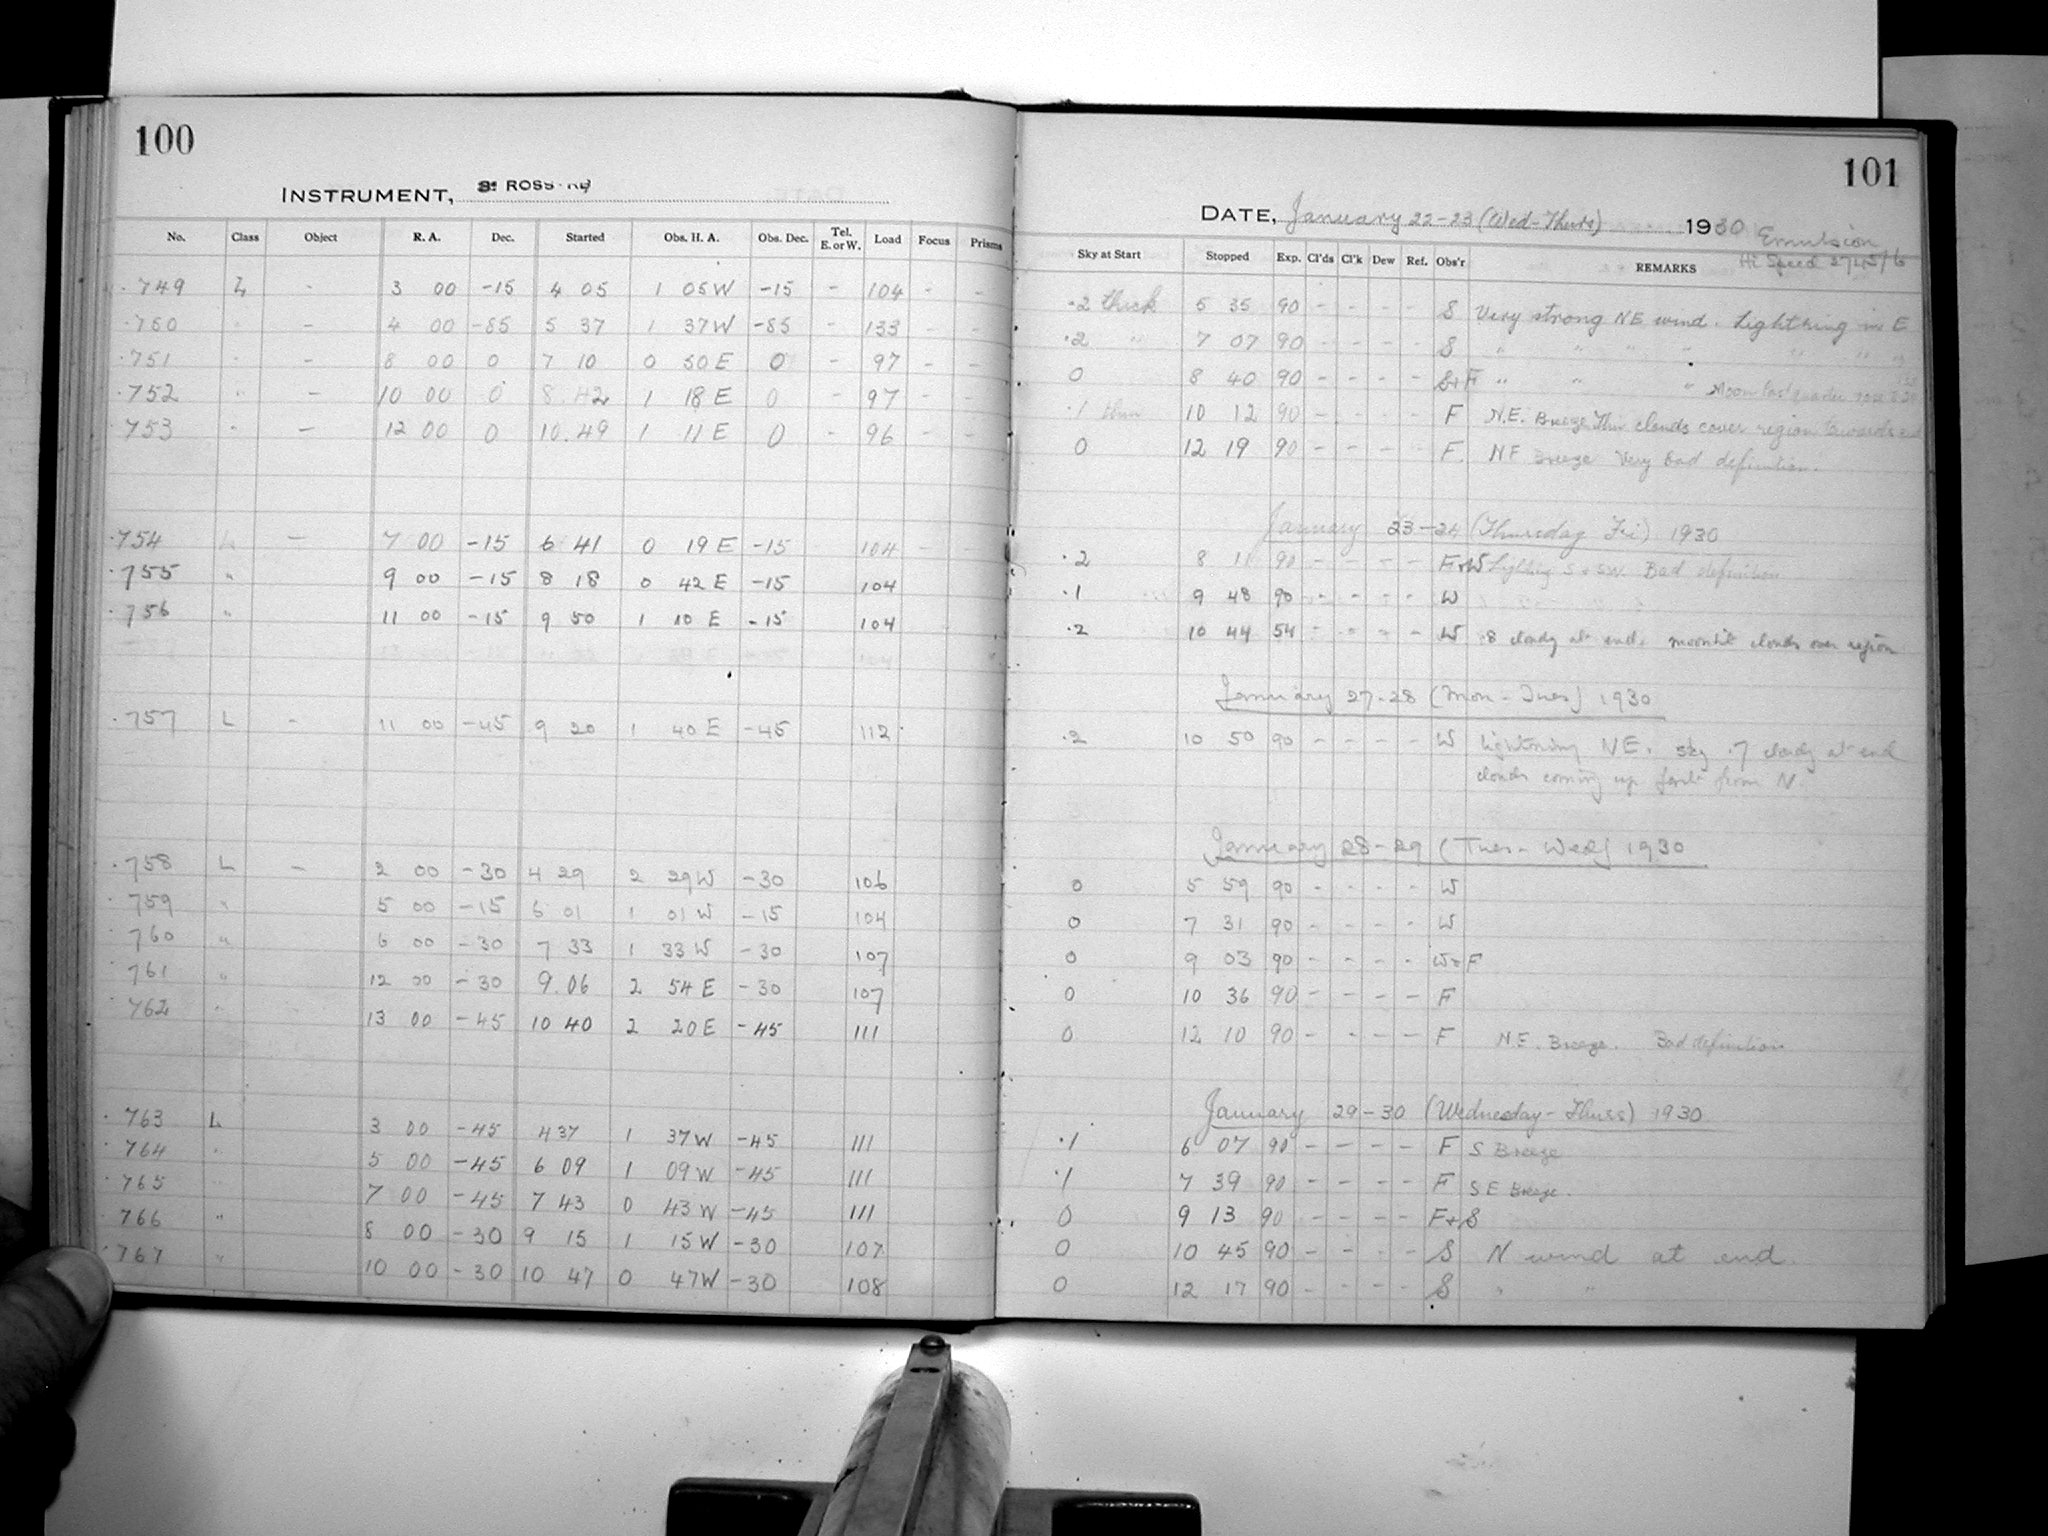 100
INSTRUMENT, 3" ROSS
No. Class Object R. A. Dec. Started Obs. H. A. Obs. Dec. Tel. E. or W. Load Focus Prisms
749 L - 3 00 -15 4 05 1 05 W -15 - 104 - -
750 " - 4 00 -85 5 37 1 37 W -85 - 133 - -
751 " - 8 00 0 7 10 0 50 E 0 - 97 - -
752 " - 10 00 0 8 42 1 18 E 0 - 97 - -
753 " - 12 00 0 10 49 1 11 E 0 - 96 - -
754 L - 7 00 -15 6 41 0 19 E -15 104 - -
755 " 9 00 -15 8 18 0 42 E -15 104
756 " 11 00 -15 9 50 1 10 E -15 104
757 L - 11 00 -45 9 20 1 40 E -45 112
758 L - 2 00 -30 4 29 2 29 W -30 106
759 " 5 00 -15 6 01 1 01 W -15 104
760 " 6 00 -30 7 33 1 33 W -30 107
761 " 12 00 -30 9.06 2 54 E -30 107
762 " 13 00 -45 10 40 2 20 E -45 111
763 L 3 00 -45 4 37 1 37 W -45 111
764 " 5 00 -45 6 09 1 09 W -45 111
765 7 00 -45 7 43 0 43 W -45 111
766 " 8 00 -30 9 15 1 15 W -30 107
767 " 10 00 -30 10 47 0 47 W -30 108
101
DATE, January 22-23 (Wed-Thurs) 1930
Emulsion
Hi Speed
Sky at Start Stopped Exp. Cl'ds Cl'k Dew Ref. Obs'r REMARKS
.2 thick 5 35 90 - - - - S Very strong NE wind. Lightning in E
.2 " 7 07 90 - - - - S " " " " " " "
0 8 40 90 - - - - S+F " " " Moon last quarter rose
.1 thin 10 12 90 - - - - F N.E. Breeze Thin clouds cover region towards end
0 12 19 90 - - - - F NE Breeze Very bad definition.
January 23-24 (Thursday Fri) 1930
.2 8 11 90 - - - - F+W S + SW. Bad definition
.1 9 48 90 - - - - W
.2 10 44 54 - - - - W .8 cloudy at end. moonlit clouds over region
January 27-28 (Mon-Tues) 1930
.2 10 50 90 - - - - W lightning NE. sky .7 cloudy at end
clouds coming up fast from N.
January 28-29 (Tues-Wed) 1930
0 5 59 90 - - - - W
0 7 31 90 - - - - W
0 9 03 90 - - - - W+F
0 10 36 90 - - - - F
0 12 10 90 - - - - F N.E. Breeze. Bad definition
January 29-30 (Wednesday-Thurs) 1930
.1 6 07 90 - - - - F S Breeze
.1 7 39 90 - - - - F SE Breeze.
0 9 13 90 - - - - F+S
0 10 45 90 - - - - S N wind at end.
0 12 17 90 - - - - S " "